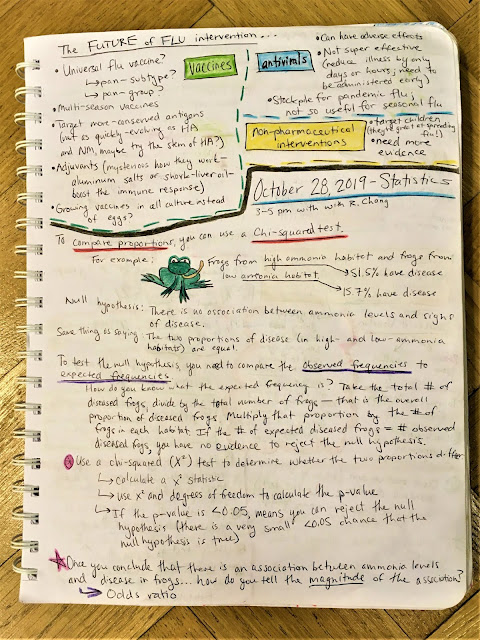 The FUTURE of FLU intervention...
vaccines
• Universal flu vaccine?
↳ pan-subtype?
↳ pan-group?
• Multi-season vaccines
• Target more-conserved antigens
(not as quickly-evolving as HA
and NM, maybe try the stem of HA?)
• Adjuvants (mysterious how they work—
aluminum salts or shark-liver oil—
boost the immune response)
• Growing vaccines in cell culture instead
of eggs?
antivirals
• Can have adverse effects
• Not super effective
(reduce illness by only
days or hours; need to
be administered early)
• Stockpile for pandemic flu;
not so useful for seasonal flu
Non-pharmaceutical
interventions
• target children
(they're great at spreading
flu!)
• need more
evidence
October 28, 2019 - Statistics
3-5 pm with with R. Chang
To compare proportions, you can use a Chi-squared test.
For example:
Frogs from high ammonia habitat and frogs from
low amonia habitat
→ 51.5% have disease
→ 15.7% have disease
Null hypothesis: There is no association between ammonia levels and signs
of disease.
Same thing as saying: The two proportions of disease (in high- and low-ammonia
habitats) are equal.
To test the null hypothesis, you need to compare the observed frequencies to
expected frequencies
How do you know what the expected frequency is? Take the total # of
diseased frogs, divide by the total number of frogs — that is the overall
proportion of diseased frogs. Multiply that proportion by the # of
frogs in each habitat. If the # of expected diseased frogs = # observed
diseased frogs, you have no evidence to reject the null hypothesis.
Use a chi-squared (X²) test to determine whether the two proportions differ
↳ Calculate a x² statistic
↳ use x² and degrees of freedom to calculate the p-value
↳ If the p-value is <0.05, means you can reject the null
hypothesis (there is a very small <0.05 chance that the
null hypothesis is true)
Once you conclude that there is an association between ammonia levels
and disease in frogs... how do you tell the magnitude of the association?
→ Odds ratio